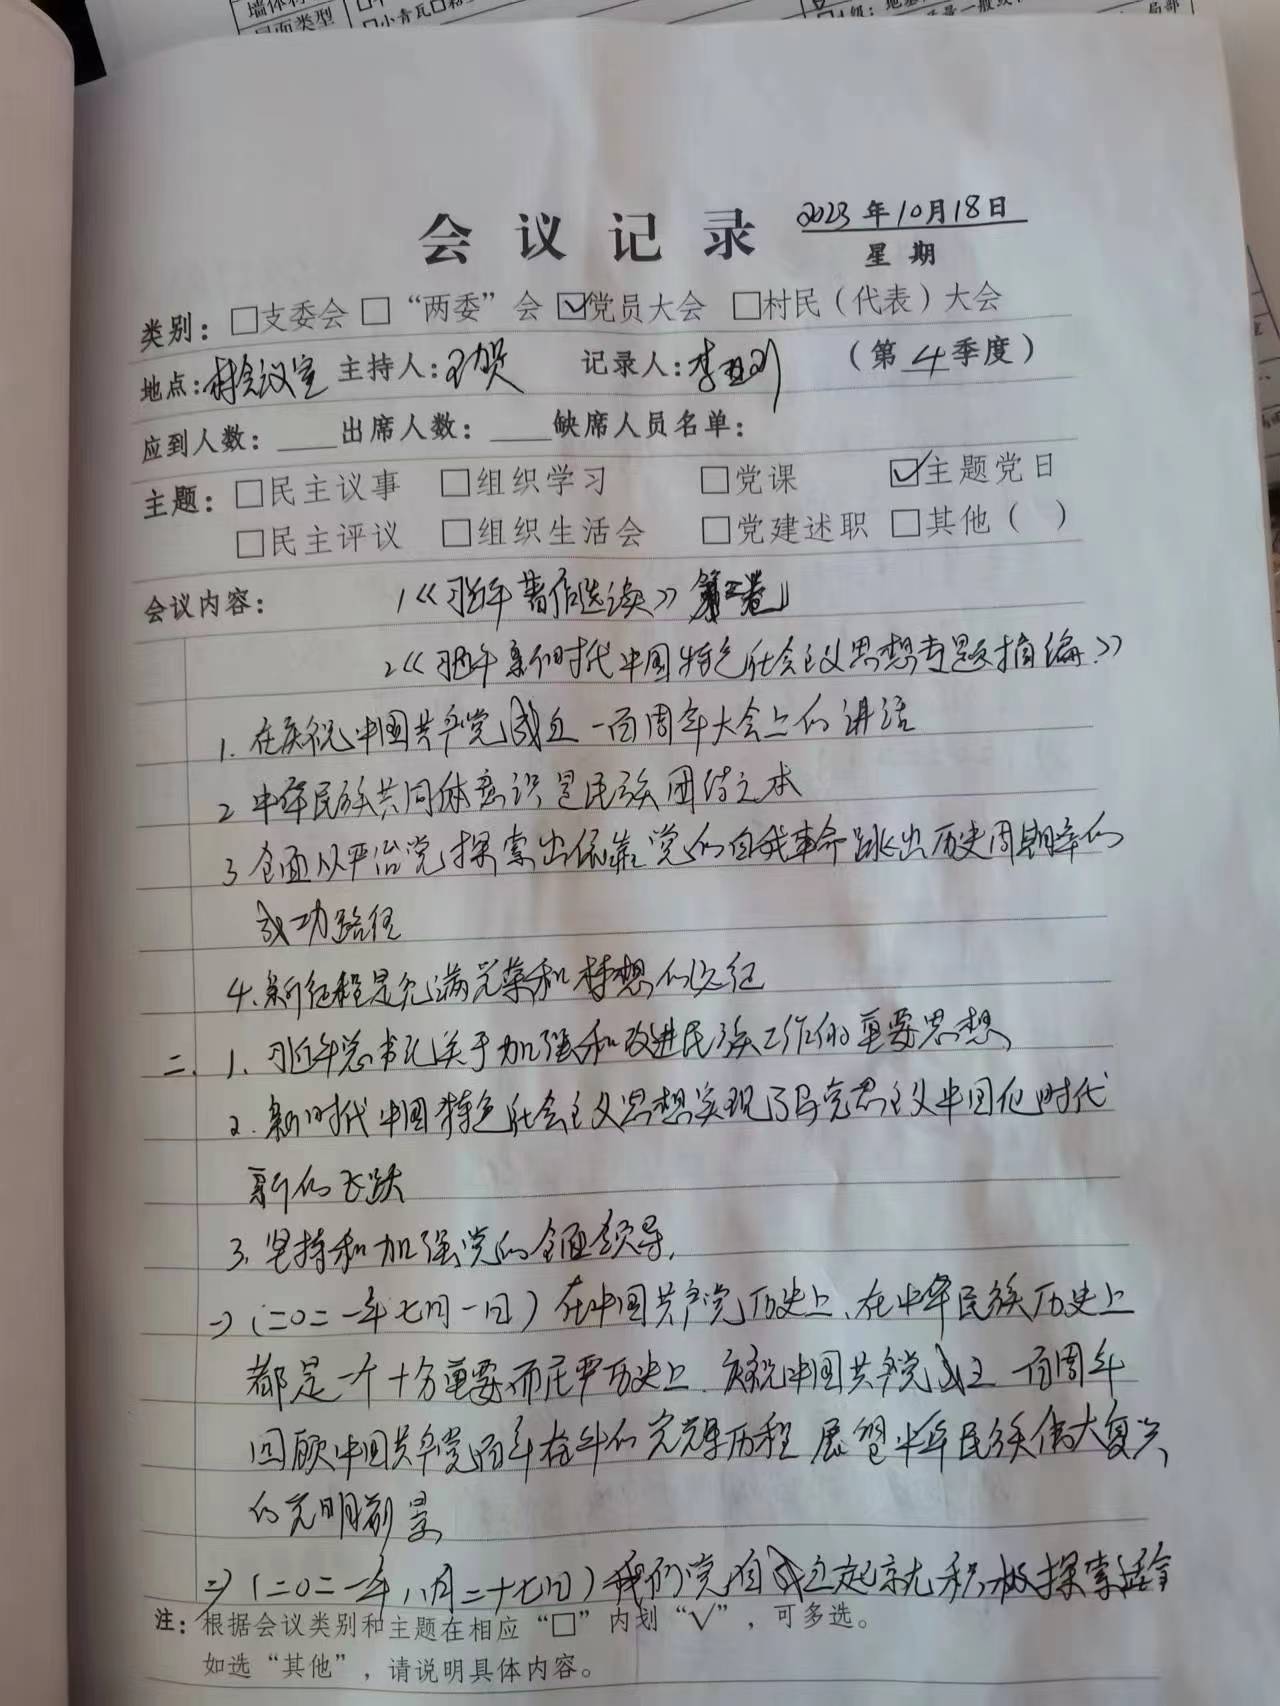 墙体
屋面类型
□小青瓦□
局部
会议记录
2023年10月18日
星期
类别：□支委会 □“两委”会 ☑党员大会 □村民（代表）大会
地点：村会议室 主持人：王贺 记录人：李亚刚 （第4季度）
应到人数：____出席人数：____缺席人员名单：
主题：□民主议事 □组织学习 □党课 ☑主题党日
□民主评议 □组织生活会 □党建述职 □其他（ ）
会议内容： 1《习近平著作选读》第二卷
2《习近平新时代中国特色社会主义思想专题摘编》
1. 在庆祝中国共产党成立一百周年大会上的讲话
2 中华民族共同体意识是民族团结之本
3 全面从严治党探索出依靠党的自我革命跳出历史周期率的
成功路径
4、新征程是充满光荣和梦想的远征
二、1、习近平总书记关于加强和改进民族工作的重要思想
2. 新时代中国特色社会主义思想实现了马克思主义中国化时代
新的飞跃
3. 坚持和加强党的全面领导.
一）（二〇二一年七月一日）在中国共产党历史上、在中华民族历史上
都是一个十分重要而庄严历史上 庆祝中国共产党成立一百周年
回顾中国共产党百年奋斗的光辉历程 展望中华民族伟大复兴
的光明前景
二）（二〇二一年八月二十七日）我们党自成立起就积极探索适合
注：根据会议类别和主题在相应“□”内划“√”，可多选。
如选“其他”，请说明具体内容。